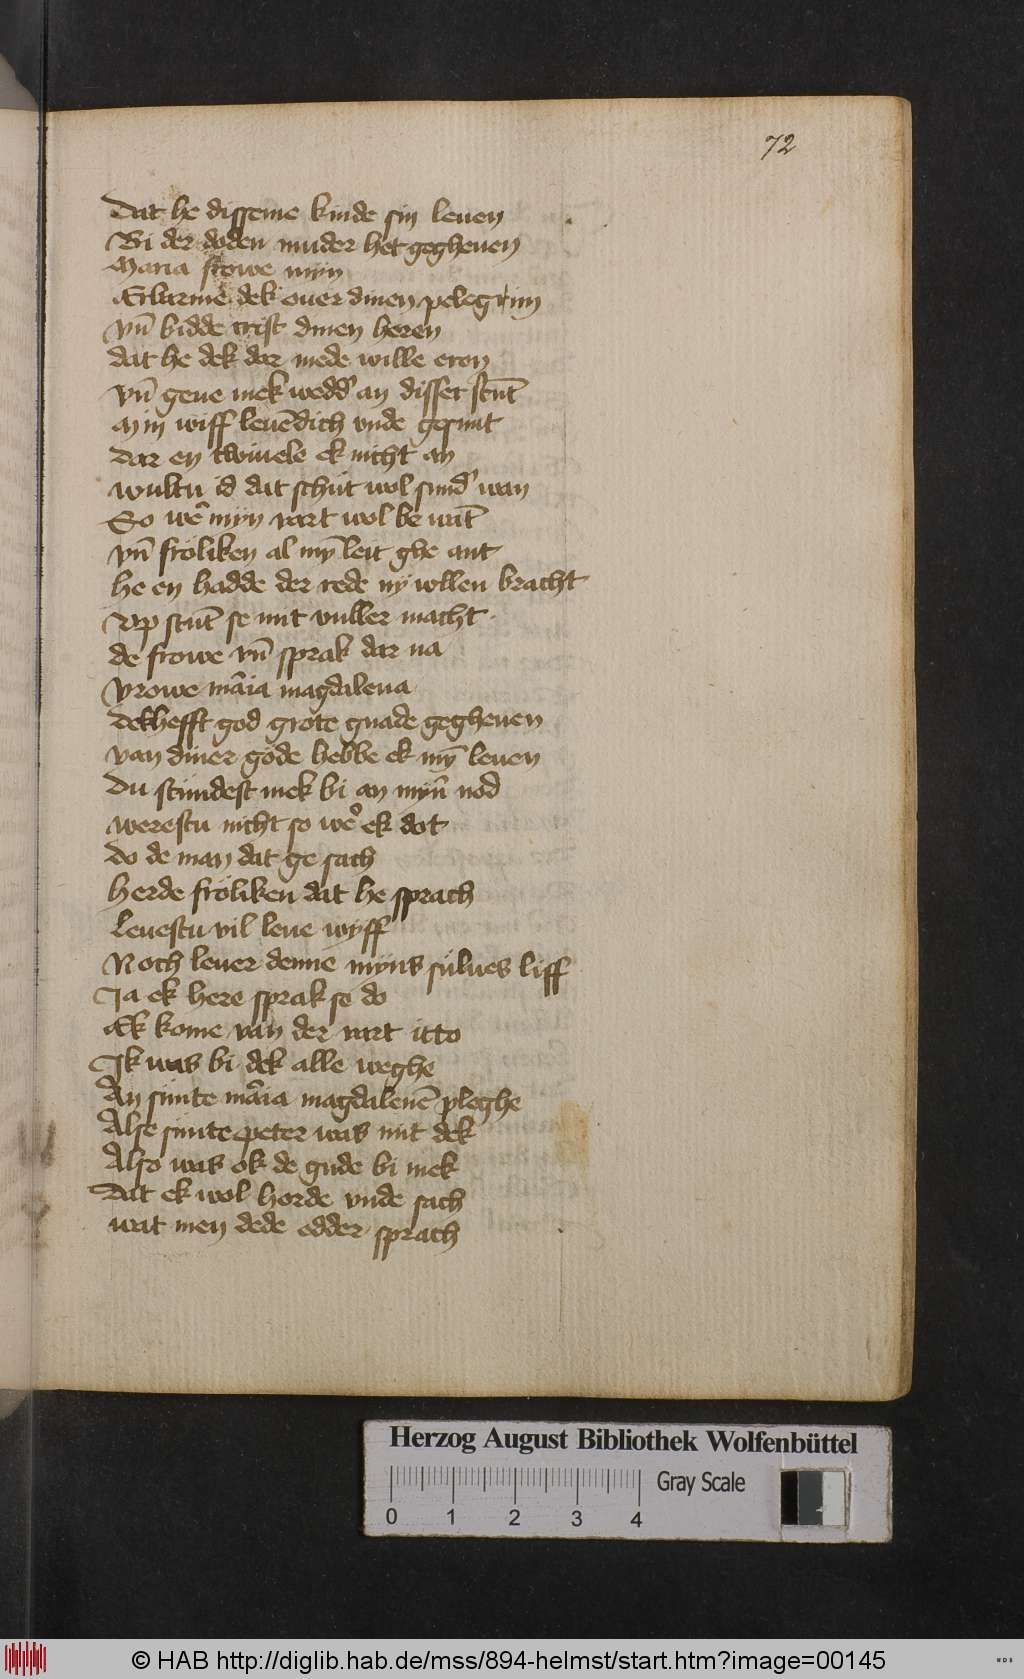 72
Dat he disseme kinde sin leuen
Bi der doden muder het gegheuen
Maria frowe myn
Erbarme dek ouer dinen pelegrim
vn̄ bidde crist dinen heren
dat he dek dar mede wille eren
vn̄ geue mek wedd' an disser stūt
Min wiff leuēdich vnde gesunt
Dar en twiuele ek nicht an
wultu id dat schut wol sund' wan
So wer myn vart wol be wāt
vn̄ froliken al mȳ leit ghe ant
he en hadde der rede ny wllen bracht
Vp stūt se mit vuller macht
de frowe vn̄ sprak dar na
vrowe māria magdalena
dek hefft god grote gnade gegheuen
van diner gode hebbe ek mȳ leuen
Du stundest mek bi an myn̄ nod
werestu nicht so wer ek dot
do de man dat ge sach
herde froliken dat he sprach
Leuestu vil leue wyff
Noch leuer denne myns sulues liff
Ja ek here sprak se do
Ek kome van der vart itto
Ik was bi dek alle weghe
An sunte māria magdalenē pleghe
Alse sunte peter was mit dek
Also was ok de gude bi mek
Dat ek wol horde vnde sach
wat men dede edder sprach
Herzog August Bibliothek Wolfenbüttel
Gray Scale
0 1 2 3 4
© HAB http://diglib.hab.de/mss/894-helmst/start.htm?image=00145